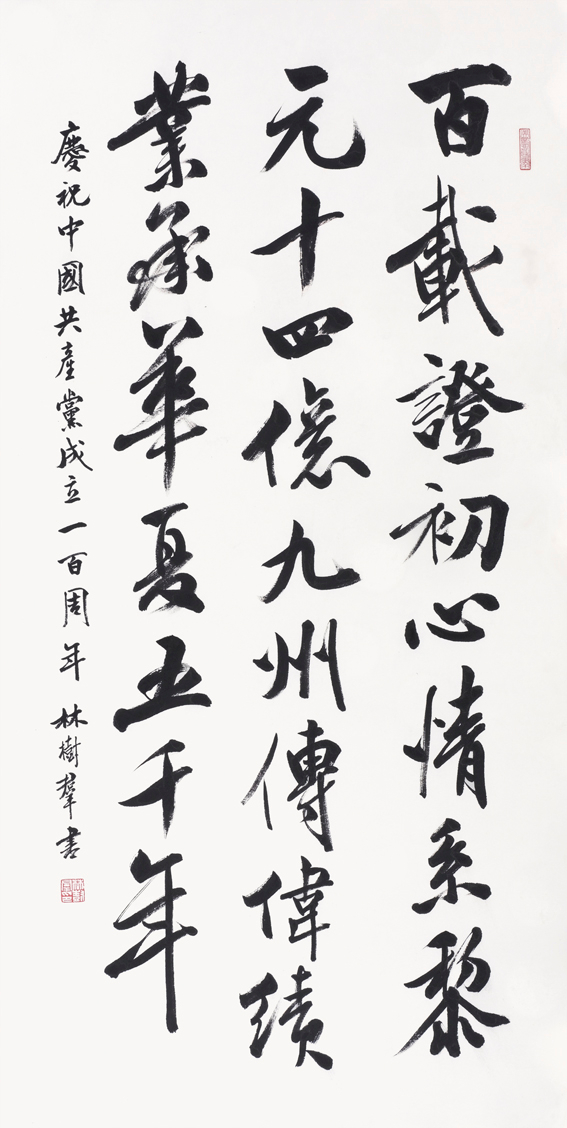 百載證初心情系黎
元十四億九州傳偉績
業承華夏五千年
慶祝中國共產黨成立一百周年 林樹羣書